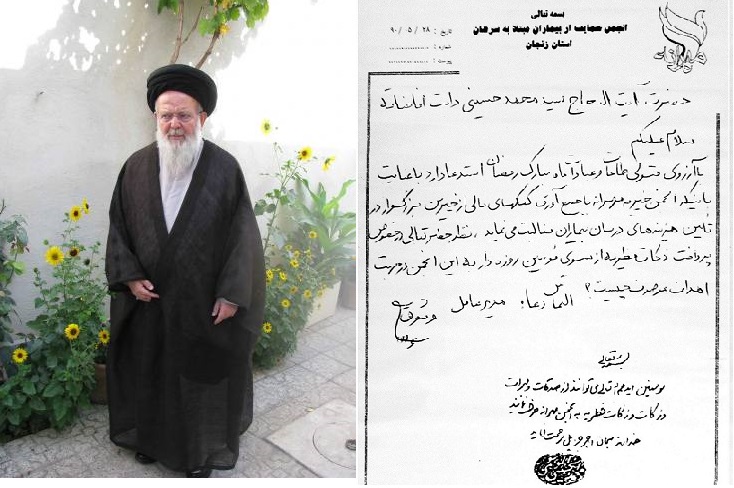 بسمه تعالی
انجمن حمایت از بیماران مبتلا به سرطان
استان زنجان
تاریخ : ۹۰/۰۵/۲۸
شماره :
پیوست :
حضرت آیت الله حاج سید محمد حسینی دامت افاضاته
سلام علیکم
با آرزوی قبولی طاعات و عبادات ماه مبارک رمضان استدعا دارد با عنایت
باینکه انجمن خیریه مهرانه با جمع آوری کمکهای مالی از خیرین بزرگوار در
تأمین هزینه های درمان بیماران فعالیت می نماید، نظر حضرتعالی در خصوص
پرداخت زکات فطریه از سوی مؤمنین روزه دار به این انجمن در جهت
اهداف مذکور چیست؟ التماس دعا، مدیرعامل
بسمه تعالی
مؤمنین ایدهم الله تعالی می توانند از صدقات و خیرات
و زکات و زکات فطریه به انجمن مهرانه